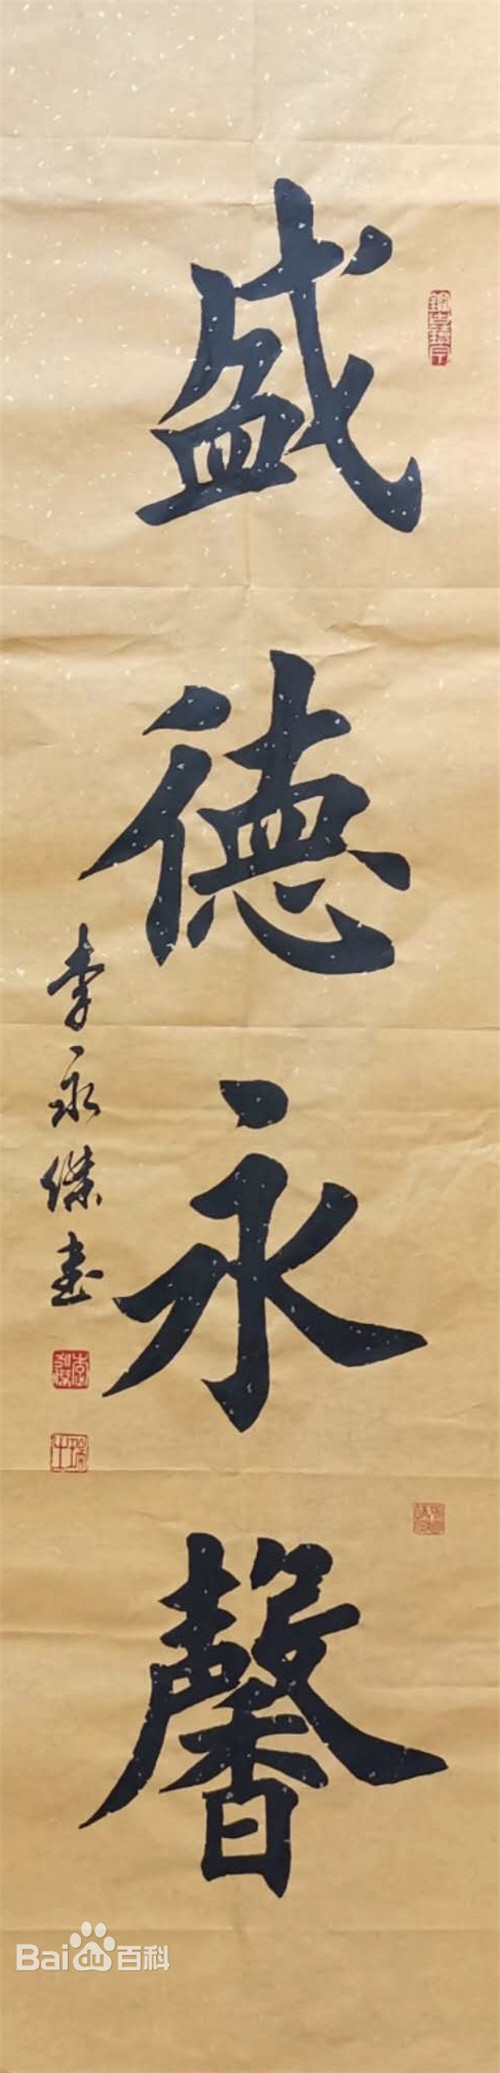 盛德永馨
李永傑書
Baidu百科